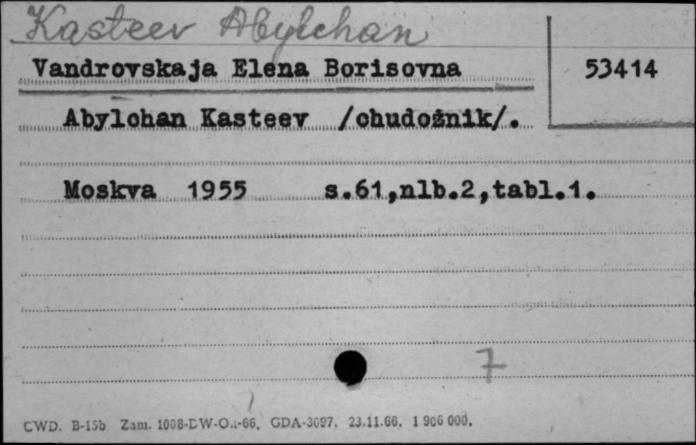 Kasteev Abylchan
Vandrovskaja Elena Borisovna
53414
Abylohan Kasteev /chudožnik/.
Moskva 1955 s.61,nlb.2,tabl.1.
7
CWD. B-15b Zam. 1008-DW-Oa-66. GDA-3097. 23.11.66. 1 906 000.